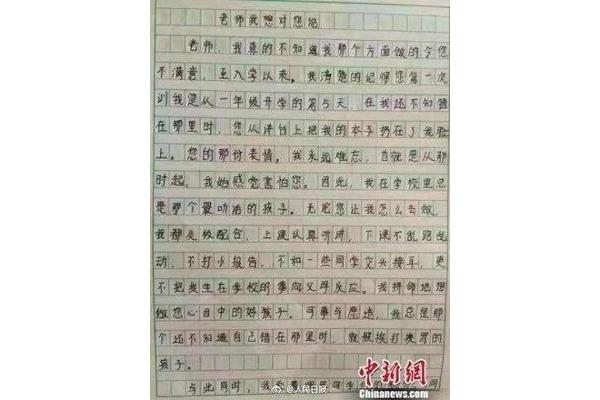 老师我想对您说
老师，我真的不知道我那个方面做的令您
不满意，至入学以来。我清楚的记得您第一次
训我是从一年级开学的第5天，在我还不知错
在那里时，您从讲台上把我的本子扔在了我脸
上。您的那份表情。我永远难忘，也就是从那
时起，我始感觉害怕您。因此，我在学校里总
是那个最听话的孩子。无论您让我怎么去做，
我都是极配合，上课认真听讲，下课不乱跑乱
动，不打小报告，不和一些同学交头接耳，更
不把发生在学校的事向父母反应。我拼命地想
做您心目中的好孩子。可事与愿违，我总是那
个还不知道自己错在那里时，就被挨打挨骂的
孩子。
与此同时，我
@人民日报
中新网
Chinanews.com